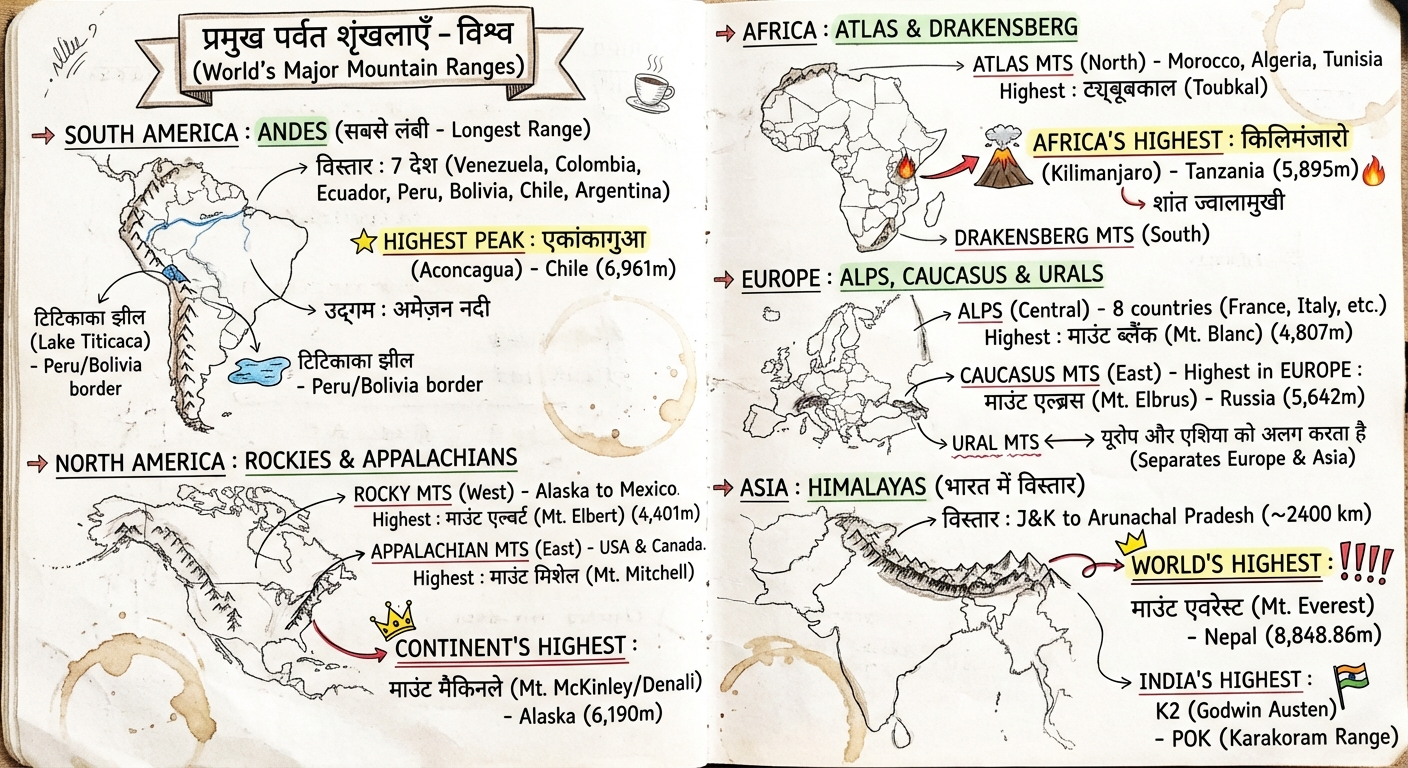 प्रमुख पर्वत शृंखलाएँ – विश्व
(World's Major Mountain Ranges)
→ SOUTH AMERICA : ANDES (सबसे लंबी - Longest Range)
विस्तार : 7 देश (Venezuela, Colombia,
Ecuador, Peru, Bolivia, Chile, Argentina)
HIGHEST PEAK : एकांकागुआ
(Aconcagua) - Chile (6,961m)
उद्गम : अमेज़न नदी
टिटिकाका झील
(Lake Titicaca)
- Peru/Bolivia
border
टिटिकाका झील
- Peru/Bolivia border
→ NORTH AMERICA : ROCKIES & APPALACHIANS
ROCKY MTS (West) - Alaska to Mexico.
Highest : माउंट एल्वर्ट (Mt. Elbert) (4,401m)
APPALACHIAN MTS (East) - USA & Canada.
Highest : माउंट मिशेल (Mt. Mitchell)
CONTINENT'S HIGHEST :
माउंट मैकिनले (Mt. McKinley/Denali)
- Alaska (6,190m)
→ AFRICA : ATLAS & DRAKENSBERG
ATLAS MTS (North) - Morocco, Algeria, Tunisia
Highest : ट्यूबूबकाल (Toubkal)
AFRICA'S HIGHEST : किलिमंजारो
(Kilimanjaro) - Tanzania (5,895m)
शांत ज्वालामुखी
DRAKENSBERG MTS (South)
→ EUROPE : ALPS, CAUCASUS & URALS
ALPS (Central) - 8 countries (France, Italy, etc.)
Highest : माउंट ब्लैंक (Mt. Blanc) (4,807m)
CAUCASUS MTS (East) - Highest in EUROPE :
माउंट एल्ब्रस (Mt. Elbrus) - Russia (5,642m)
URAL MTS ↔ यूरोप और एशिया को अलग करता है
(Separates Europe & Asia)
→ ASIA : HIMALAYAS (भारत में विस्तार)
विस्तार : J&K to Arunachal Pradesh (~2400 km)
WORLD'S HIGHEST : !!!!
माउंट एवरेस्ट (Mt. Everest)
- Nepal (8,848.86m)
INDIA'S HIGHEST :
K2 (Godwin Austen)
- POK (Karakoram Range)